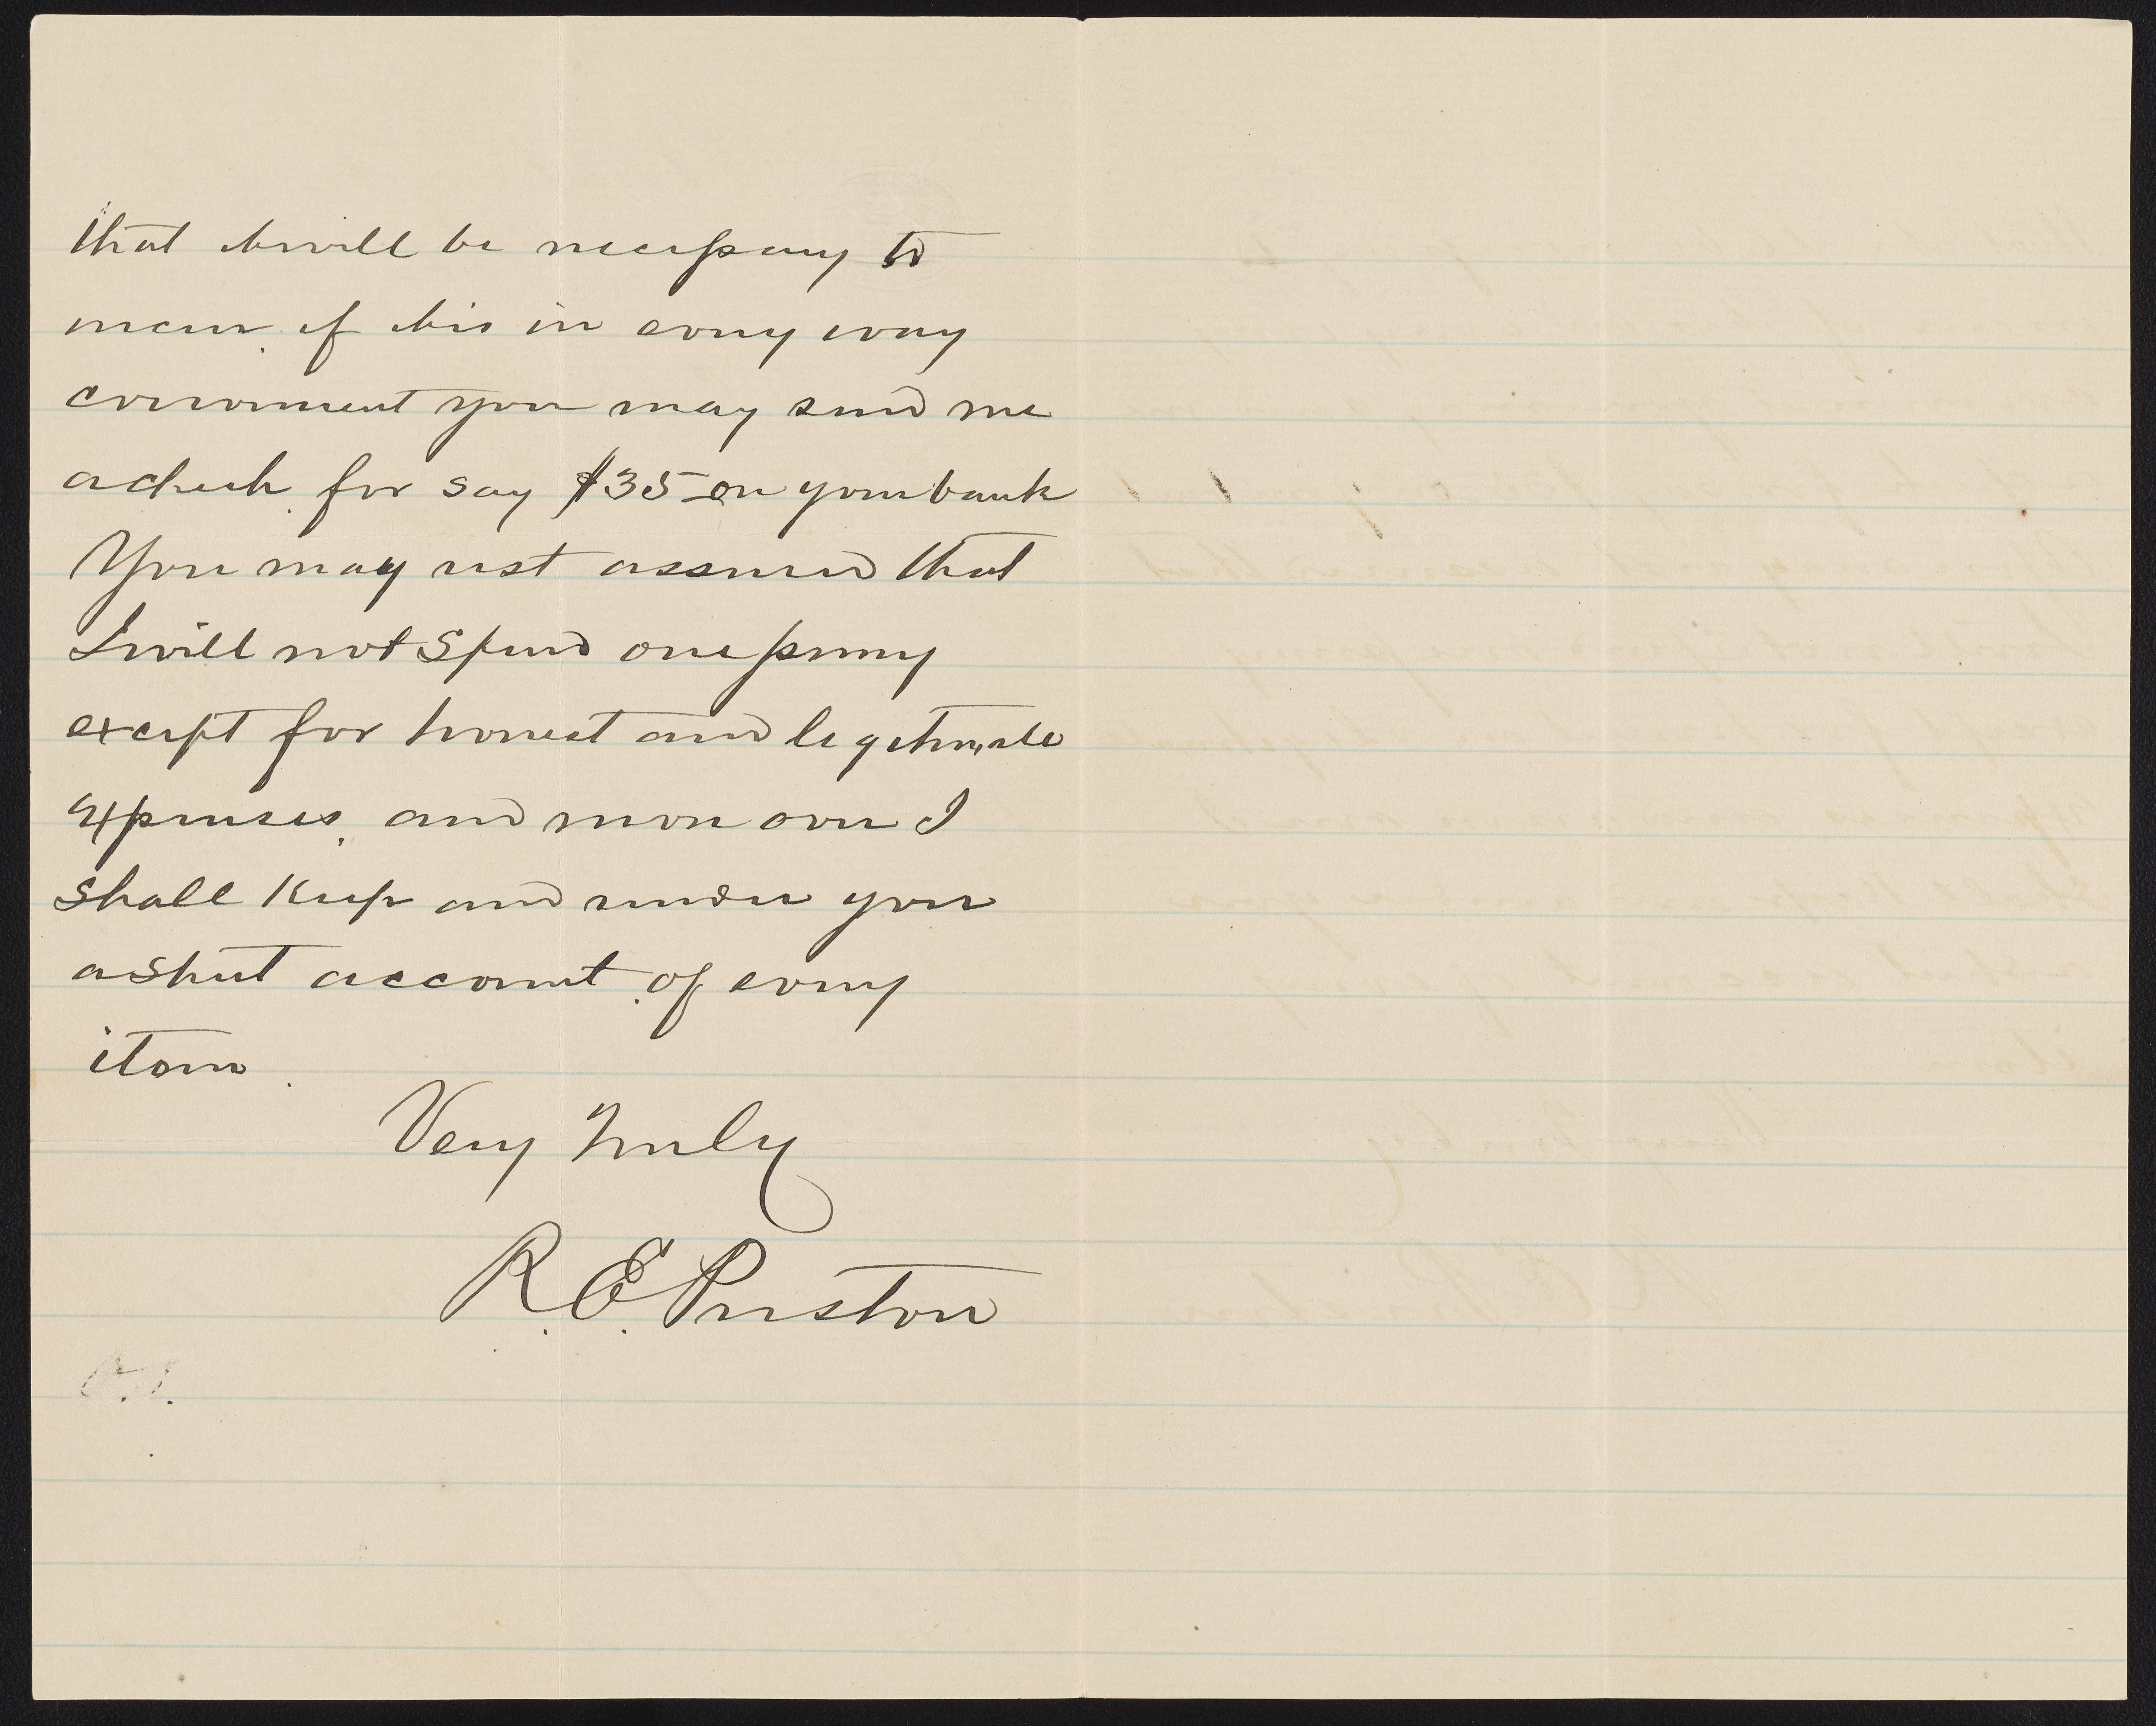 that it will be necessary to
incur. if it is in every way
convenient you may send me
a check for say $35 on your bank
You may rest assured that
I will not spend one penny
except for honest and legitimate
expenses, and more over I
shall keep and render you
a strict account of every
item.
Very Truly
R. E. Preston